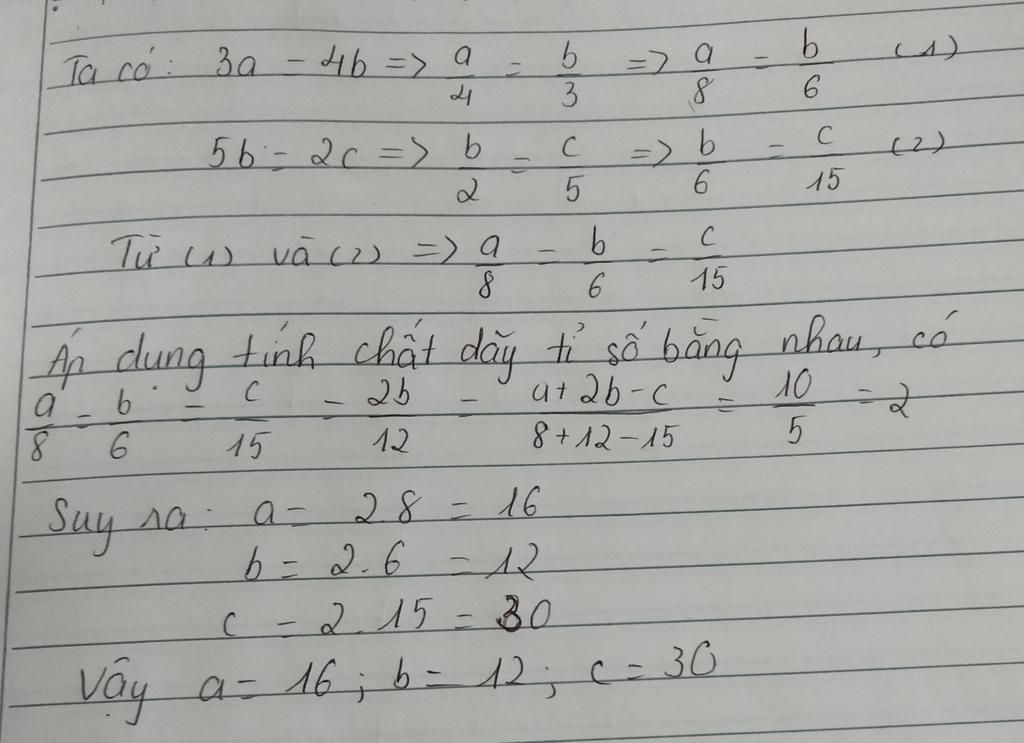 Ta có: 3a = 4b => a/4 = b/3 => a/8 = b/6 (1)
5b = 2c => b/2 = c/5 => b/6 = c/15 (2)
Từ (1) và (2) => a/8 = b/6 = c/15
Áp dụng tính chất dãy tỉ số bằng nhau, có
a/8 = b/6 = c/15 = 2b/12 = a+2b-c/8+12-15 = 10/5 = 2
Suy ra: a = 2.8 = 16
b = 2.6 = 12
c = 2.15 = 30
Vậy a = 16; b = 12; c = 30